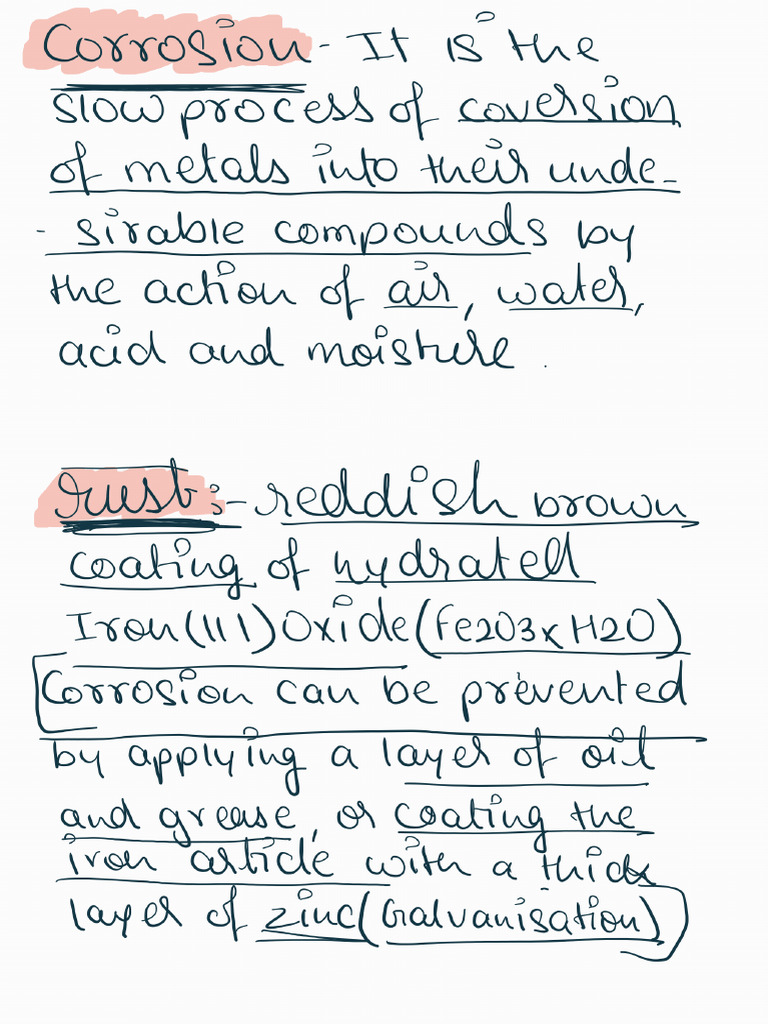 Corrosion - It is the
slow process of coversion
of metals into their unde-
- sirable compounds by
the action of air, water,
acid and moisture.
rust:- reddish brown
coating of hydrated
Iron(III)Oxide(Fe2O3xH2O)
Corrosion can be prevented
by applying a layer of oil
and grease, or coating the
iron article with a thick
layer of zinc(Galvanisation)